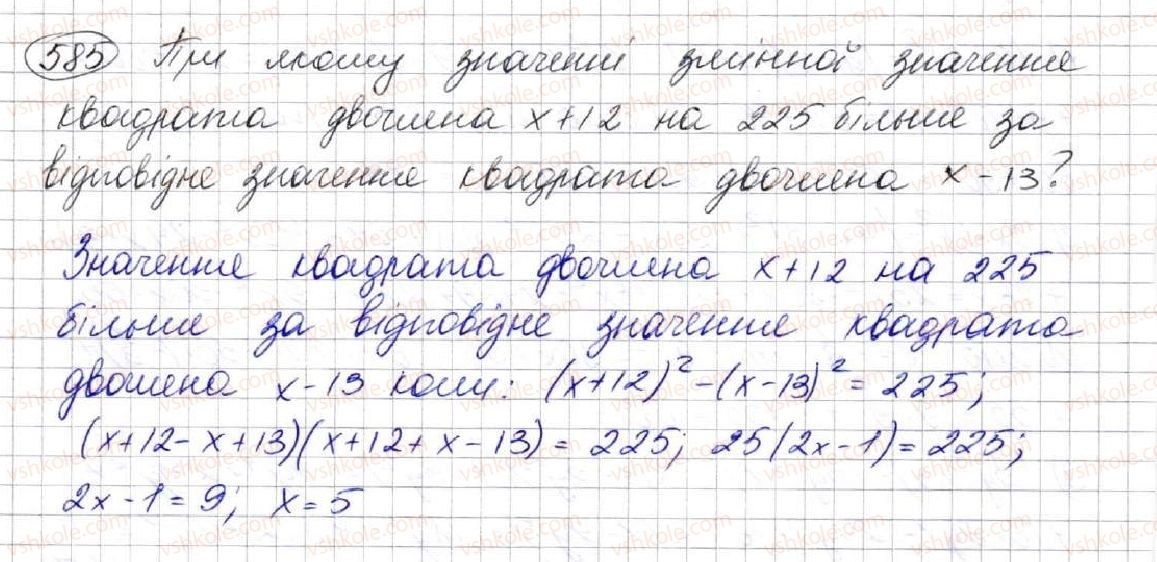 585 При якому значенні змінної значення
квадрата двочлена x+12 на 225 більше за
відповідне значення квадрата двочлена x-13?
Значення квадрата двочлена x+12 на 225
більше за відповідне значення квадрата
двочлена x-13 коли: (x+12)²-(x-13)²=225;
(x+12-x+13)(x+12+x-13)=225; 25(2x-1)=225;
2x-1=9; x=5